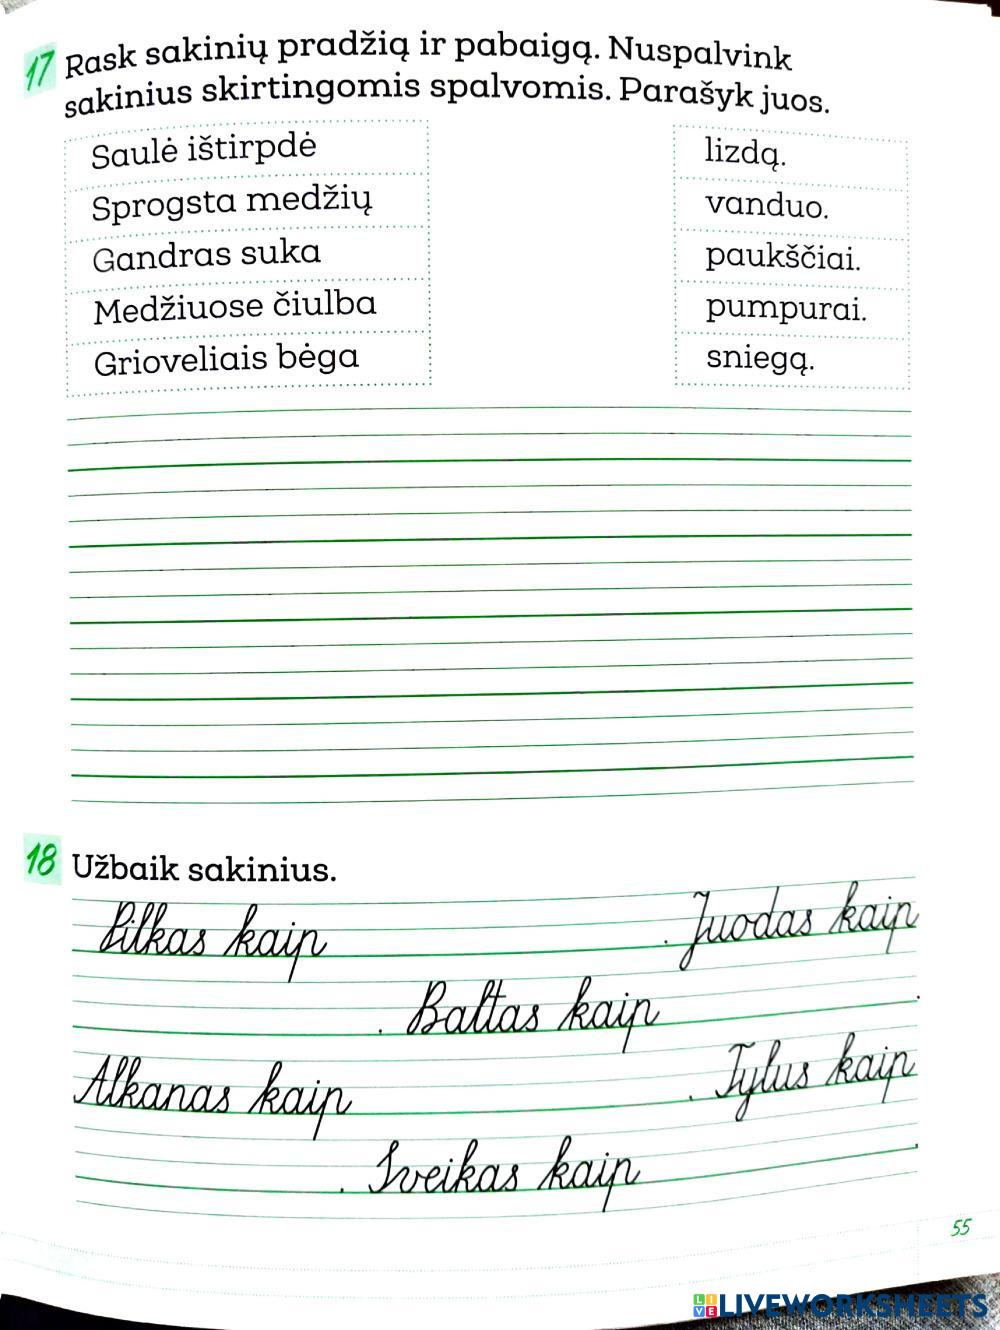 17 Rask sakinių pradžią ir pabaigą. Nuspalvink
sakinius skirtingomis spalvomis. Parašyk juos.
Saulė ištirpdė
lizdą.
Sprogsta medžių
vanduo.
Gandras suka
paukščiai.
Medžiuose čiulba
pumpurai.
Grioveliais bėga
sniegą.
18 Užbaik sakinius.
Pilkas kaip . Juodas kaip
. Baltas kaip .
Alkanas kaip . Tylus kaip
. Sveikas kaip .
55
LIVEWORKSHEETS